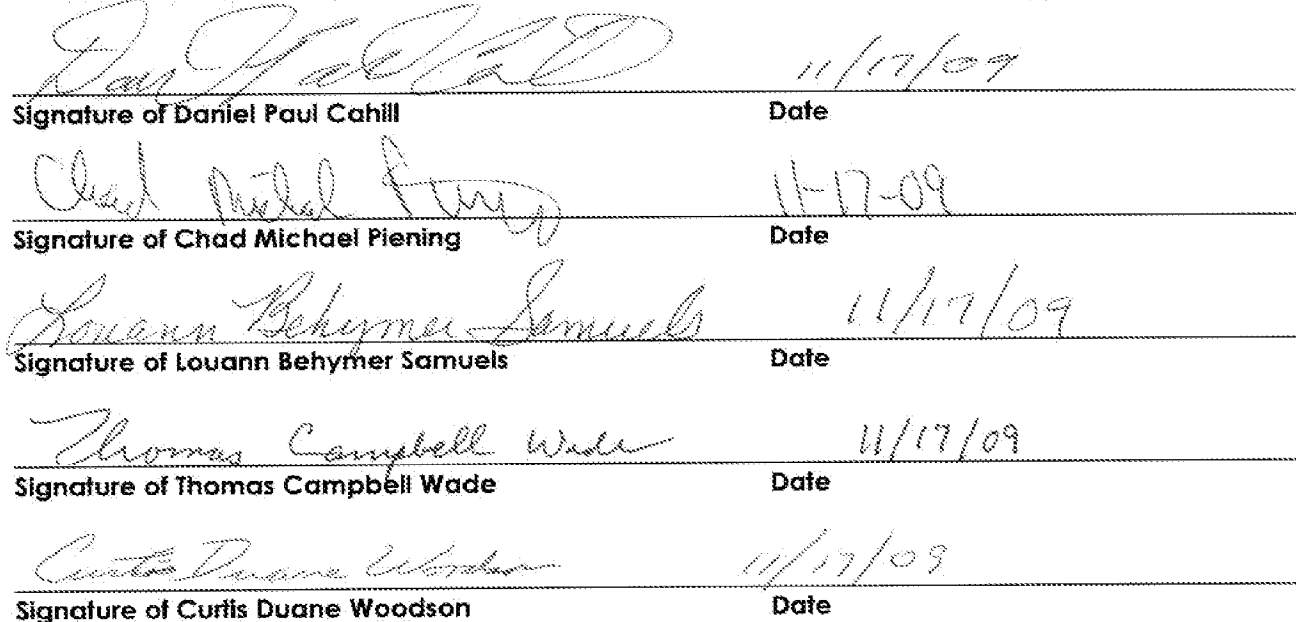 11/17/09
Signature of Daniel Paul Cahill Date
Chad Michael Piening 11-17-09
Signature of Chad Michael Piening Date
Louann Behymer Samuels 11/17/09
Signature of Louann Behymer Samuels Date
Thomas Campbell Wade 11/17/09
Signature of Thomas Campbell Wade Date
Curtis Duane Woodson 11/17/09
Signature of Curtis Duane Woodson Date